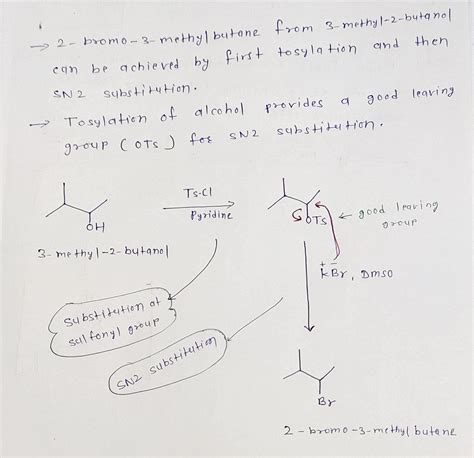 → 2-bromo-3-methylbutane from 3-methyl-2-butanol
can be achieved by first tosylation and then
SN2 substitution.
→ Tosylation of alcohol provides a good leaving
group (OTs) for SN2 substitution.
Ts-Cl
Pyridine
OH
OTs
← good leaving
group
3-methyl-2-butanol
+ -
KBr, DMSO
Substitution at
sulfonyl group
SN2 substitution
Br
2-bromo-3-methylbutane